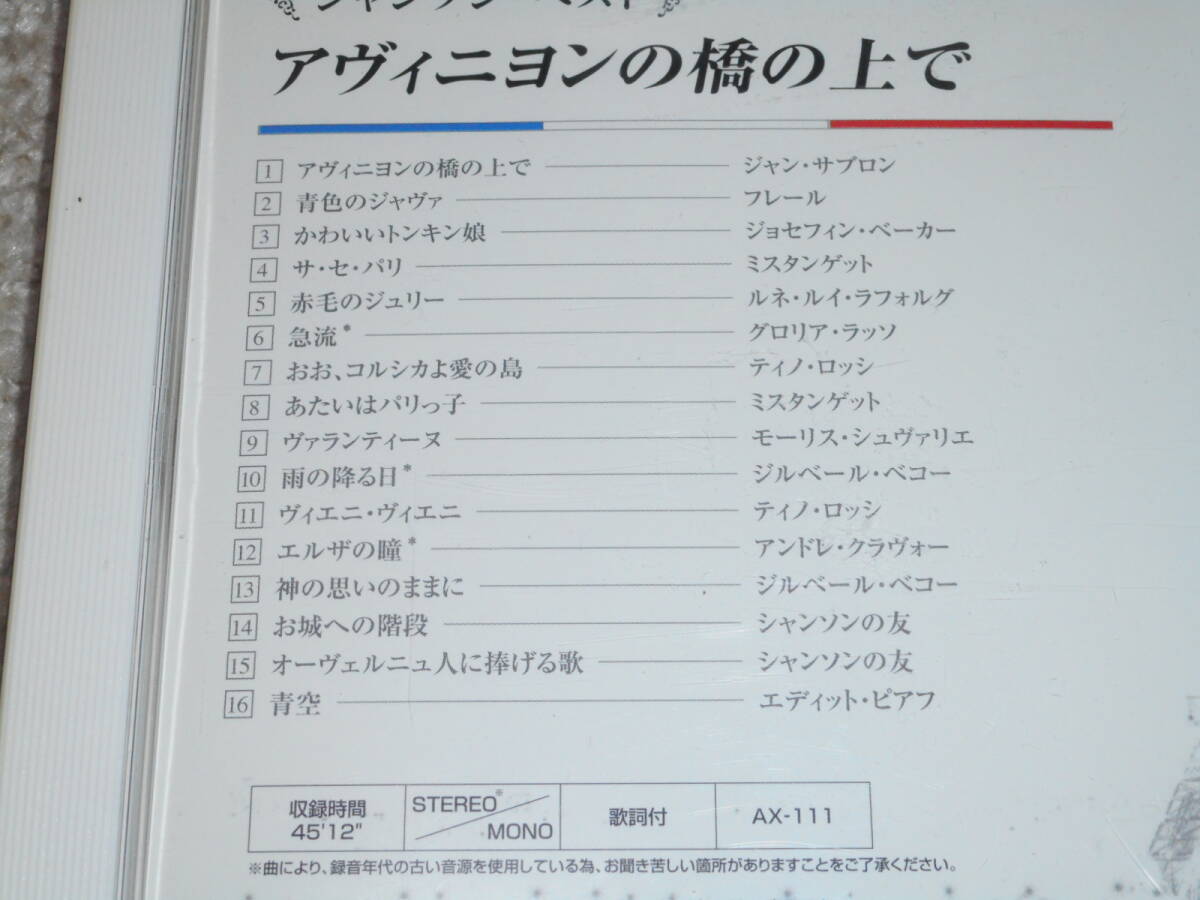 シャンソン・ベスト
アヴィニヨンの橋の上で
1 アヴィニヨンの橋の上で ジャン・サブロン
2 青色のジャヴァ フレール
3 かわいいトンキン娘 ジョセフィン・ベーカー
4 サ・セ・パリ ミスタンゲット
5 赤毛のジュリー ルネ・ルイ・ラフォルグ
6 急流* グロリア・ラッソ
7 おお、コルシカよ愛の島 ティノ・ロッシ
8 あたいはパリっ子 ミスタンゲット
9 ヴァランティーヌ モーリス・シュヴァリエ
10 雨の降る日* ジルベール・ベコー
11 ヴィエニ・ヴィエニ ティノ・ロッシ
12 エルザの瞳* アンドレ・クラヴォー
13 神の思いのままに ジルベール・ベコー
14 お城への階段 シャンソンの友
15 オーヴェルニュ人に捧げる歌 シャンソンの友
16 青空 エディット・ピアフ
収録時間 45'12" STEREO※/MONO 歌詞付 AX-111
※曲により、録音年代の古い音源を使用している為、お聞き苦しい箇所がありますことをご了承ください。